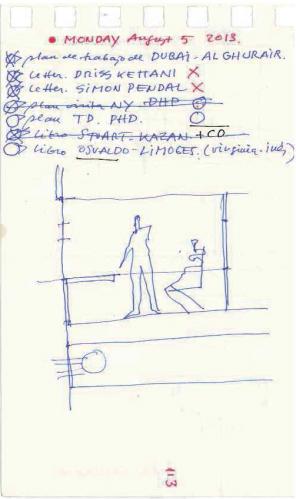 • MONDAY August 5 2013.
plan de trabajo de DUBAI - ALGHURAIR.
Letter. DRISS KETTANI X
Letter. SIMON PENDAL X
plan visita NY - PHP
plan TD. PHD.
Libro STUART - KAZAN +CD
Libro OSVALDO - LIMOGES. (virginia. ind)
113